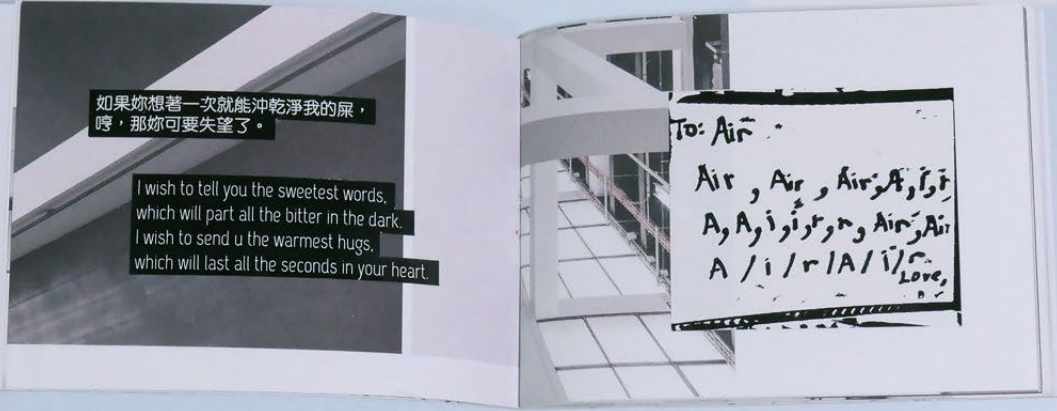 如果妳想著一次就能沖乾淨我的屎，
哼，那妳可要失望了。
I wish to tell you the sweetest words,
which will part all the bitter in the dark.
I wish to send u the warmest hugs,
which will last all the seconds in your heart.
To: Air
Air, Air, Air, A, i, r,
A, A, i, i, r, r, Air, Air
A / i / r / A / i / r
Love,